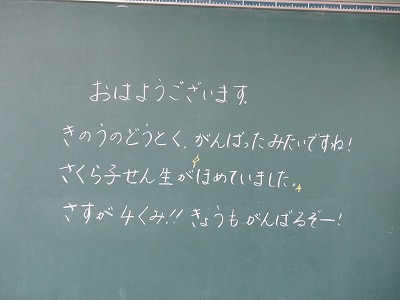 おはようございます。
きのうのどうとく、がんばったみたいですね!
さくら子せん生がほめていました。
さすが4くみ!!きょうもがんばるぞー!